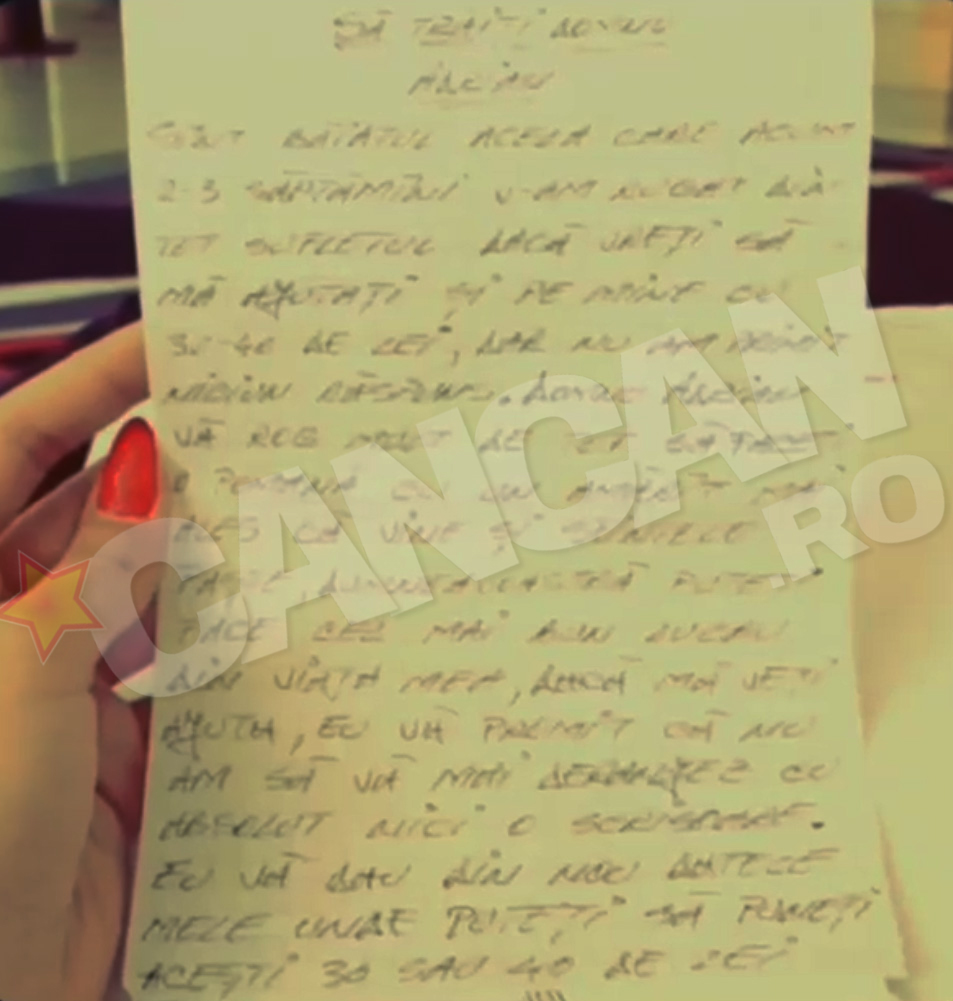 SĂ TRĂIȚI DOMNU
ADRIAN
SÎNT BĂIATUL ACELA CARE ACUM
2-3 SĂPTĂMÎNI V-AM RUGAT DIN
TOT SUFLETUL DACĂ VREȚI SĂ
MĂ AJUTAȚI ȘI PE MINE CU
30-40 DE LEI, DAR NU AM PRIMIT
NICIUN RĂSPUNS. DOMNU ADRIAN
VĂ ROG MULT DE TOT SĂ FACEȚI
O POMANĂ CU UN AMĂRÎT MAI
ALES CĂ VINE ȘI SFINTELE
PAȘTE, DUMNEAVOASTRĂ PUTEȚI
FACE CEL MAI BUN LUCRU
DIN VIAȚA MEA, DACĂ MĂ VEȚI
AJUTA, EU VĂ PROMIT CĂ NU
AM SĂ VĂ MAI DERANJEZ CU
ABSOLUT NICI O SCRISOARE.
EU VĂ DAU DIN NOU DATELE
MELE UNDE PUTEȚI SĂ PUNEȚI
ACEȘTI 30 SAU 40 DE LEI
CANCAN
.RO